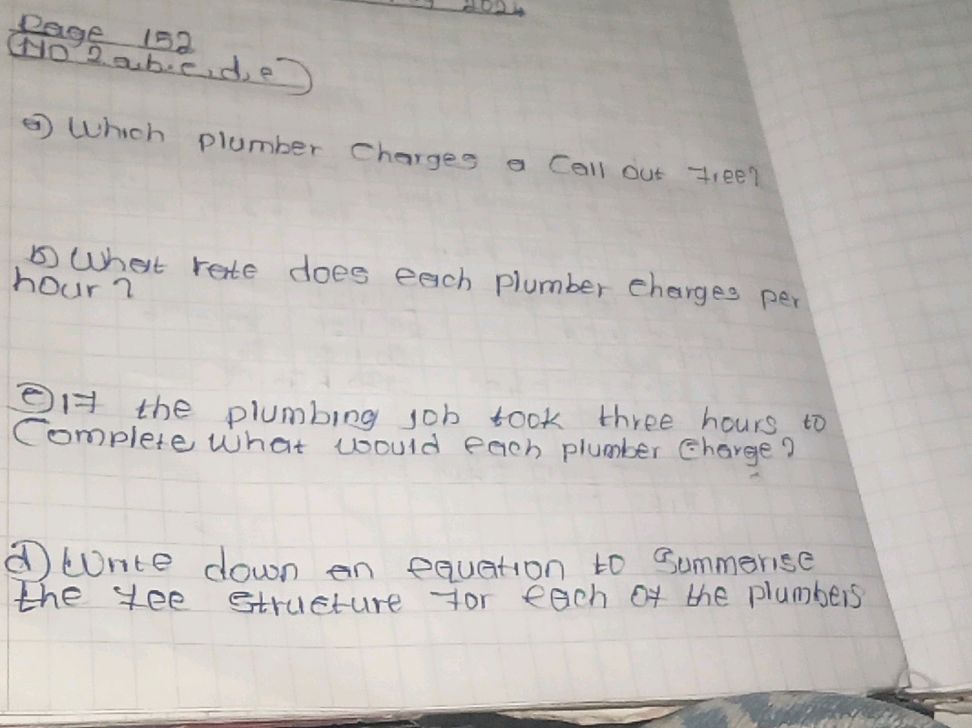 2024
Page 152
(NO 2 a,b,c,d,e)
a) Which plumber Charges a Call out free?
b) What rate does each plumber charges per
hour?
c) If the plumbing job took three hours to
Complete what would each plumber Charge?
d) Write down an equation to Summarise
the fee structure for each of the plumbers